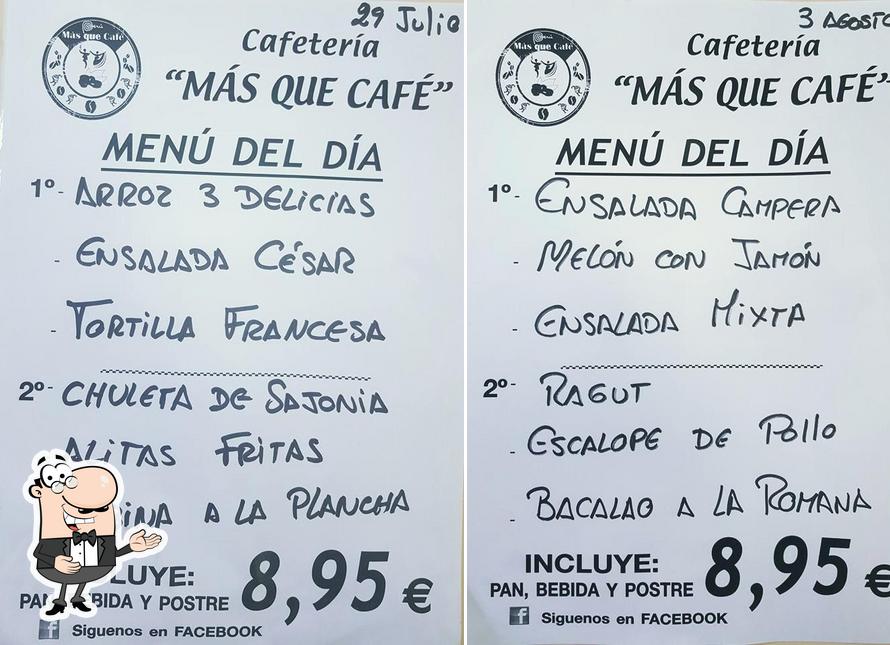 29 Julio
Más que Café
Cafetería
"MÁS QUE CAFÉ"
MENÚ DEL DÍA
1º- ARROZ 3 DELICIAS
- ENSALADA CÉSAR
- TORTILLA FRANCESA
2º- CHULETA DE SAJONIA
ALITAS FRITAS
A LA PLANCHA
BIDA Y POSTRE
8,95 €
Siguenos en FACEBOOK
3 AGOSTO
Más que Café
Cafetería
"MÁS QUE CAFÉ"
MENÚ DEL DÍA
1º- ENSALADA CAMPERA
- MELÓN CON JAMÓN
- ENSALADA MIXTA
2º- RAGUT
- ESCALOPE DE Pollo
- BACALAO A LA ROMANA
INCLUYE:
PAN, BEBIDA Y POSTRE
8,95 €
Siguenos en FACEBOOK